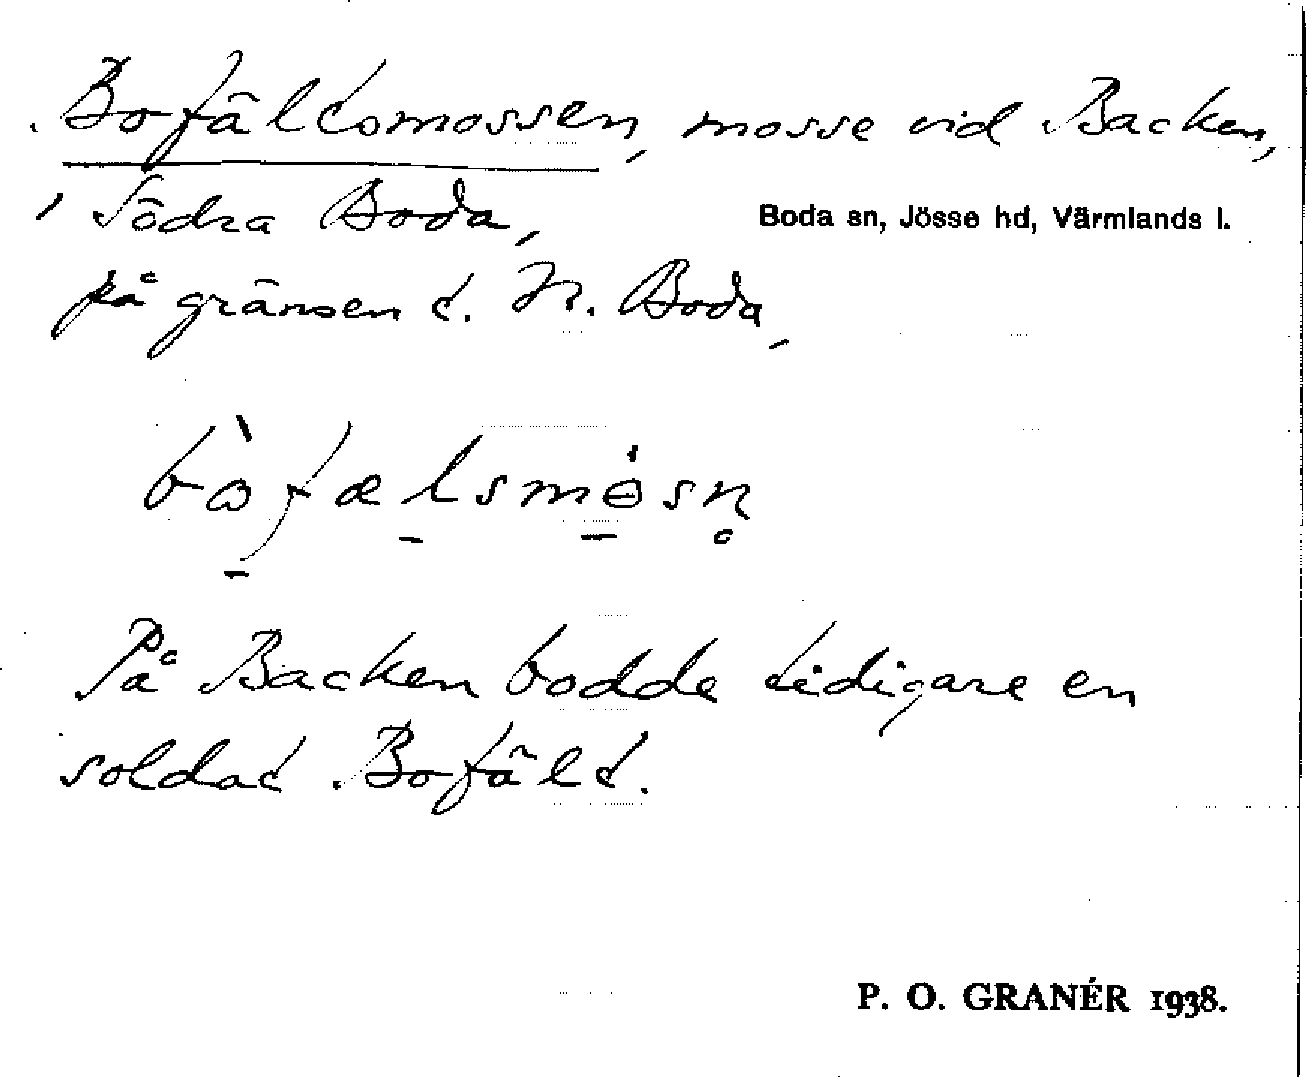 Bofältsmossen, mosse vid Backen,
Södra Boda,
Boda sn, Jösse hd, Värmlands l.
på gränsen t. N. Boda,
På Backen bodde tidigare en
soldat Bofält.
P. O. GRANÉR 1938.